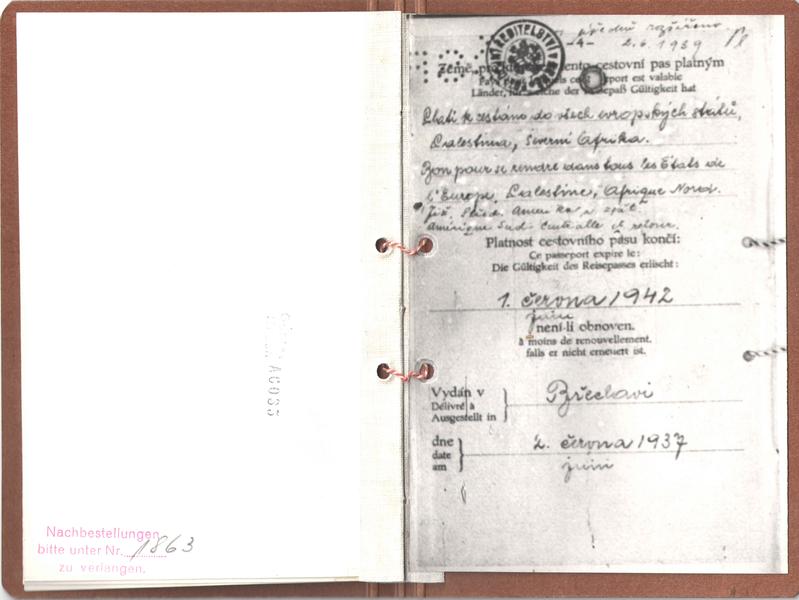 AC033
Nachbestellungen
bitte unter Nr. 1863
zu verlangen.
rozšířeno
-4- 2.6.1939
cestovní pas platným
port est valable
Länder, für welche der Reisepaß Gültigkeit hat
Platí k cestám do všech evropských států,
Palestina, Severní Afrika.
Bon pour se rendre dans tous les États de
l'Europe, Palestine, Afrique Nord.
Již. Střed. Amerika i zpět.
Amérique Sud Centralle et retour.
Platnost cestovního pasu končí:
Ce passeport expire le:
Die Gültigkeit des Reisepasses erlischt:
1. června 1942
juin
není-li obnoven.
à moins de renouvellement.
falls er nicht erneuert ist.
Vydán v
Délivré à
Ausgestellt in
Břeclavi
dne
date
am
2. června 1937
juin